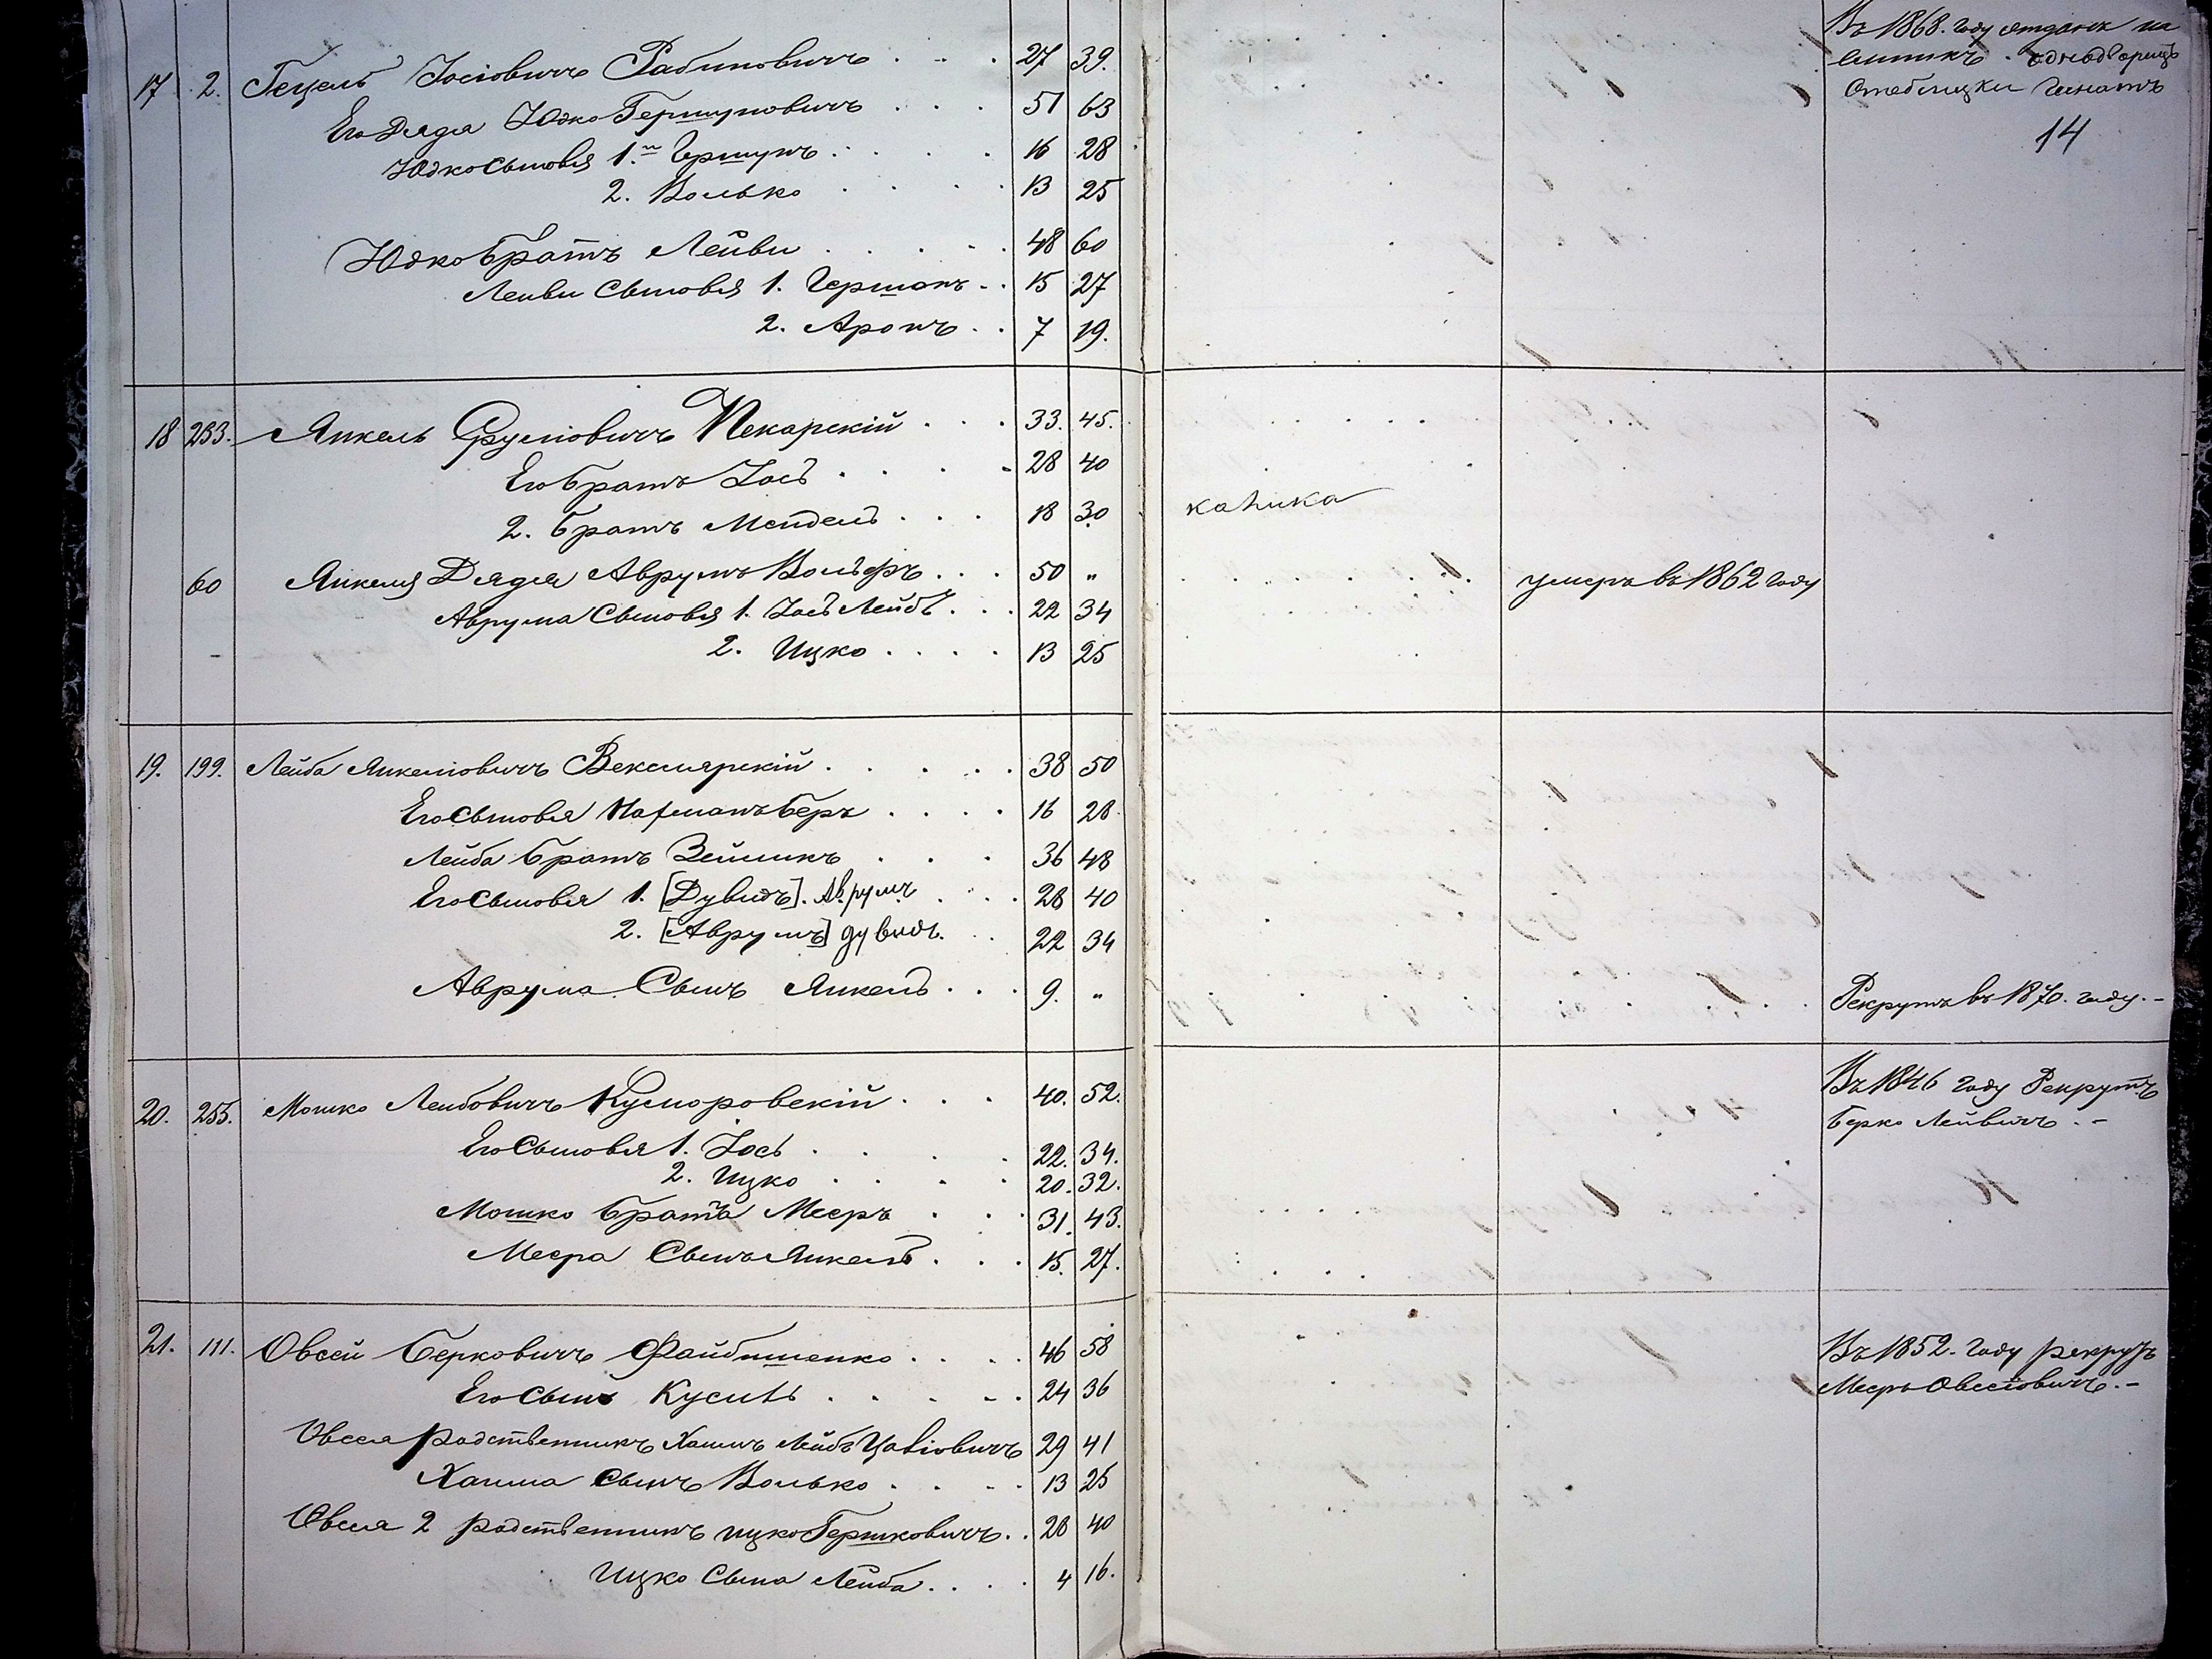 17 2. Гецель Іосіовичъ Рабиновичъ . . . 27 39. Въ 1868. году отданъ
Его Дядя Юдко Гершуновичъ . . . 51 63 однодворецъ
Юдко Сыновья 1.й Гершунъ . . . . 16 28 14
2. Волько . . . . 13 25
Юдко братъ Лейви . . . . . 48 60
Лейви Сыновья 1. Гершонъ . . 15 27
2. Аронъ . . 7 19.
18 233. Янкель Сруліовичъ Пекарскій . . . 33. 45.
Его братъ Іось . . . . 28 40
2. братъ Мендель . . . 18 30 калика
60 Янкеля Дядя Аврумъ Вольфъ . . . 50 " умеръ въ 1862 году
Аврума Сыновья 1. Іось Лейбъ . . . 22 34
2. Ицко . . . . 13 25
19. 199. Лейба Янкеліовичъ Векслярскій . . . . . 38 50
Его Сыновья Нахманъ беръ . . . . 16 28
Лейба братъ Зейликъ . . . 36 48
Его Сыновья 1. [Дувидъ]. Аврумъ . . . 28 40
2. [Аврумъ] дувидъ. . . 22 34
Аврума Сынъ Янкель . . . 9. " Рекрутъ въ 1870. году. -
20. 255. Мошко Лейбовичъ Куморовскій . . . 40. 52. Въ 1846 году Рекрутъ
Его Сыновья 1. Іось . . . . 22. 34. берко Лейвичъ . -
2. Ицко . . . . 20. 32.
Мошко братъ Мееръ . . . 31. 43.
Меера Сынъ Янкель . . . 15. 27.
21. 111. Овсей берковичъ Файбишенко . . . . 46 58 Въ 1852. году рекрутъ
Его Сынъ Кусиль . . . . . 24 36 Мееръ Овсеіовичъ. -
Овсея родственникъ Хаимъ Лейбъ 29 41
Хаима Сынъ Волько . . . . 13 25
Овсея 2 родственникъ ицко Гершковичъ . . 28 40
Ицко Сына Лейба . . . . 4 16.